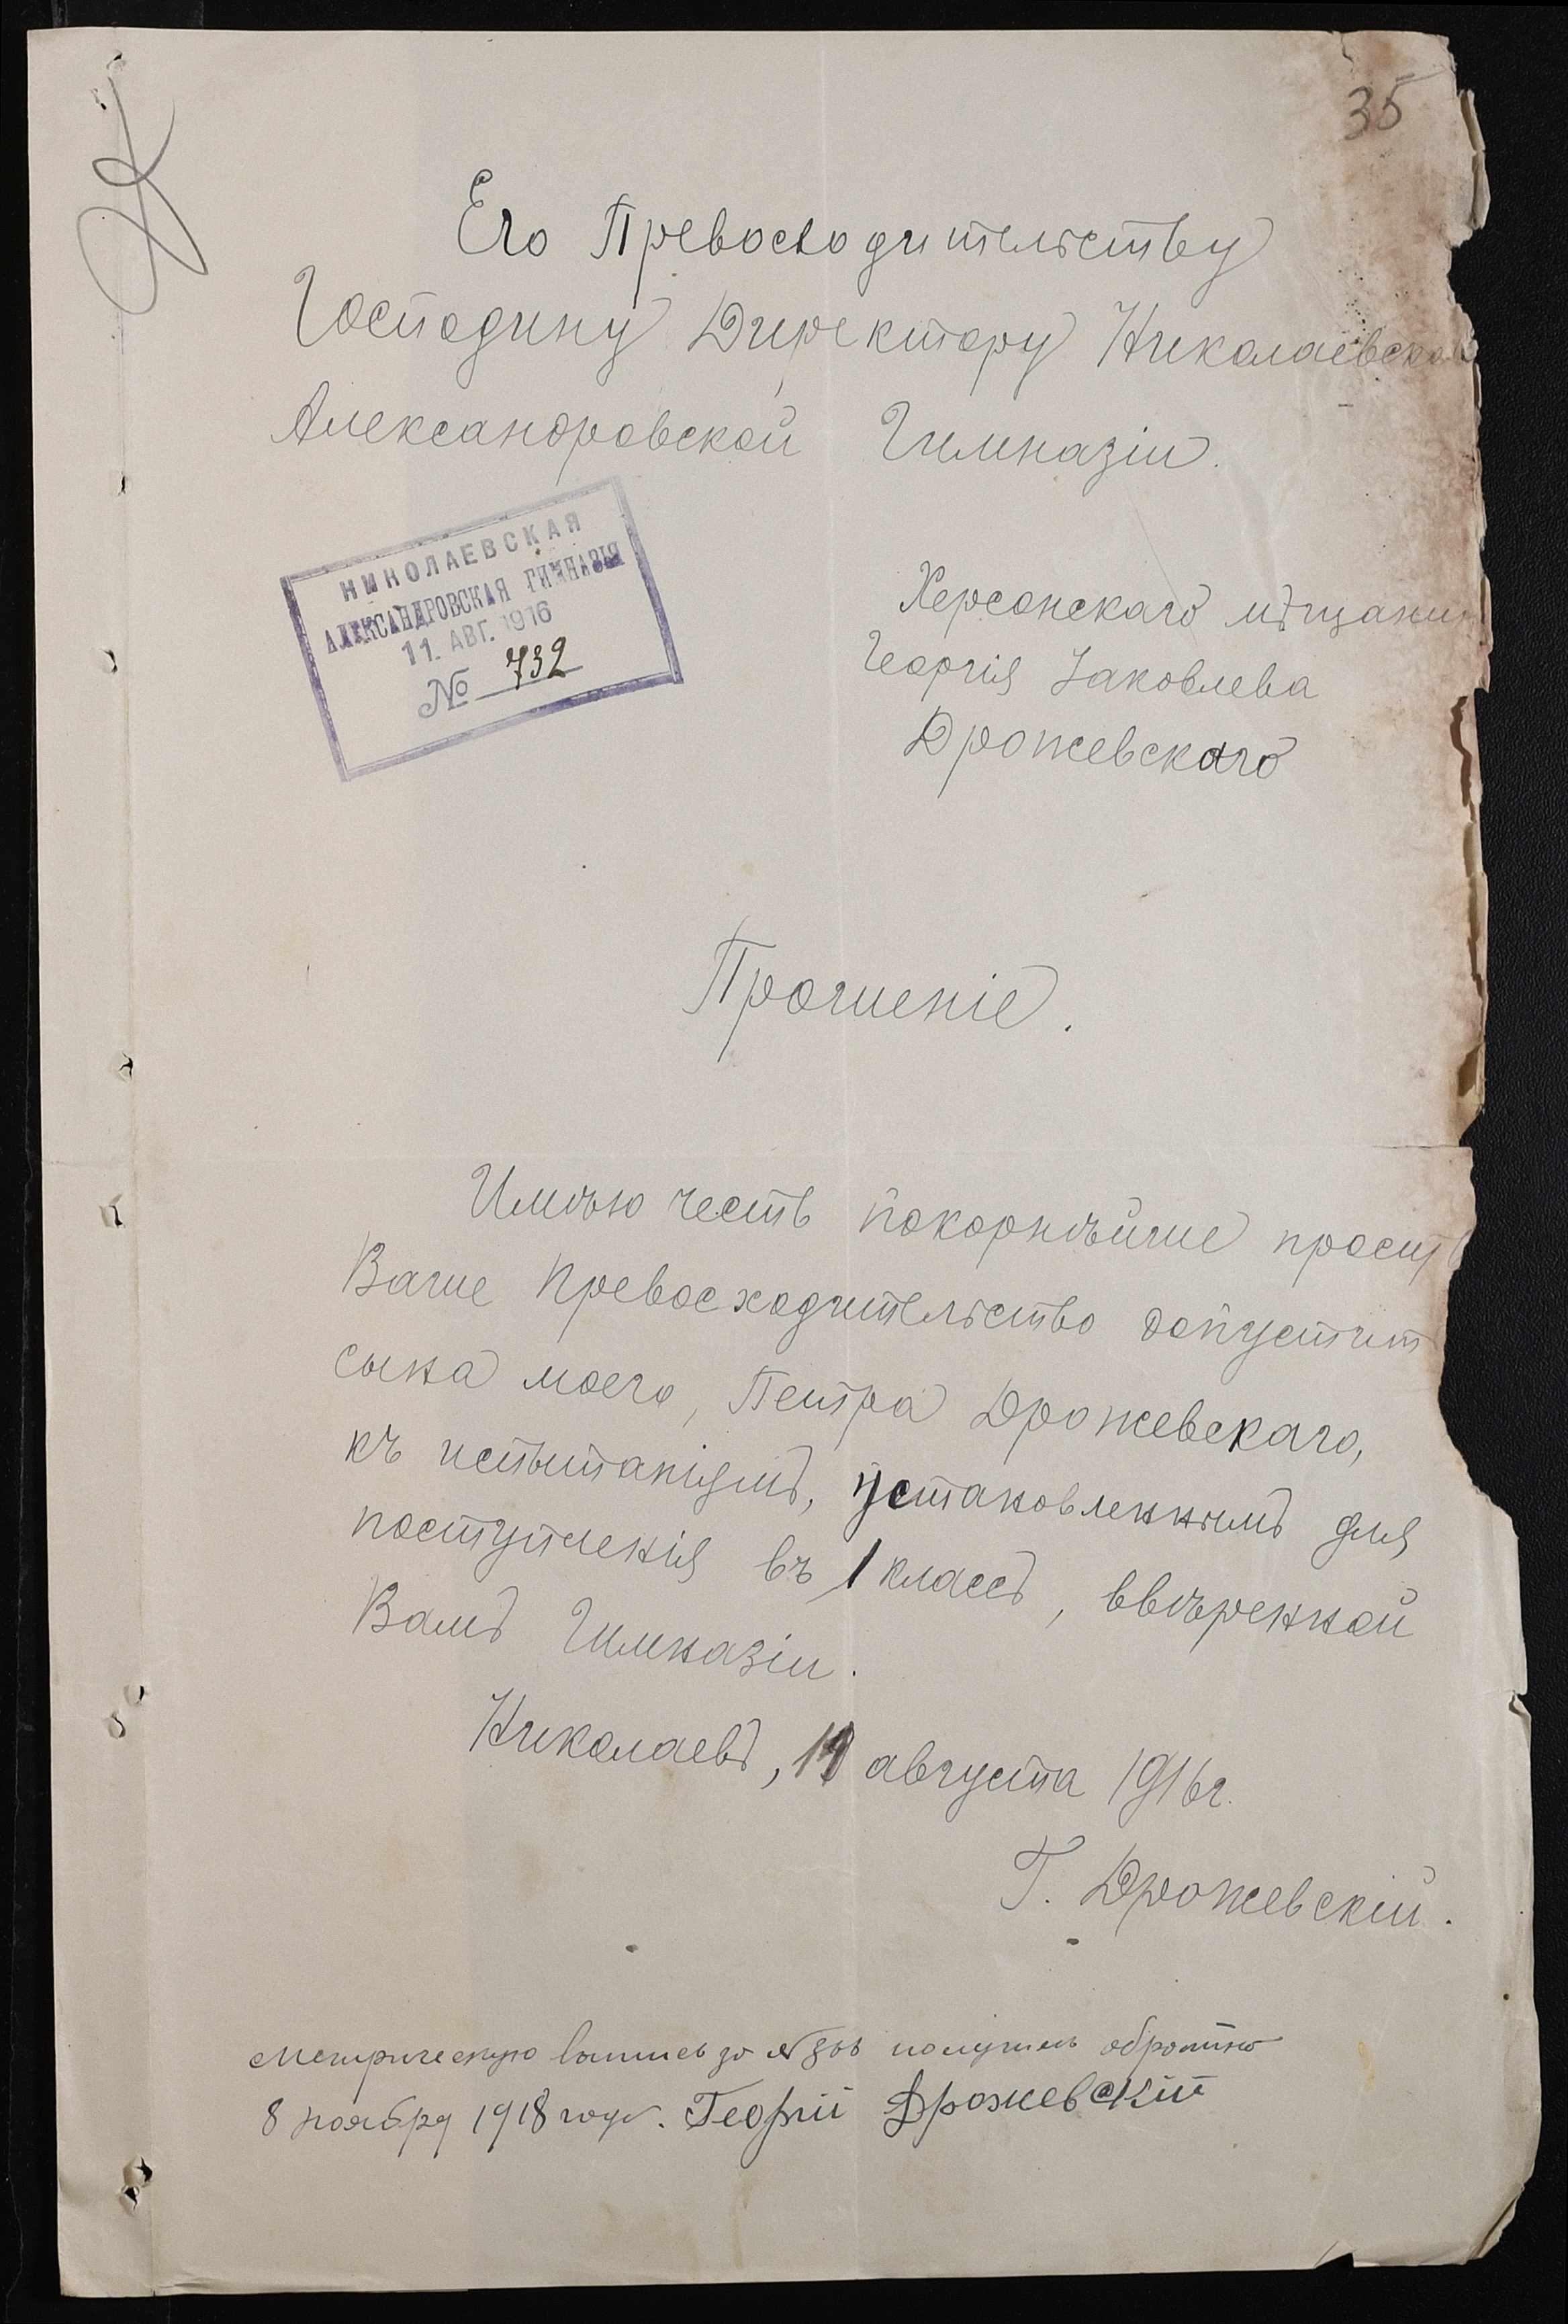 35
Его Превосходительству
Господину Директору Николаевской
Александровской Гимназіи.
НИКОЛАЕВСКАЯ
АЛЕКСАНДРОВСКАЯ ГИМНАЗІЯ
11. АВГ. 1916
№ 732
Херсонскаго мѣщани
Георгія Іаковлева
Дрожевскаго
Прошеніе.
Имѣю честь покорнѣйше просить
Ваше Превосходительство допустит
сына моего, Петра Дрожевскаго,
къ испытаніямъ, установленнымъ для
поступленія въ 1 классъ, ввѣренной
Вамъ Гимназіи.
Николаевъ, 11 августа 1916 г.
Г. Дрожевскій.
Метрическую выпись за № получилъ обратно
8 ноября 1918 года. Георгій Дрожевскій